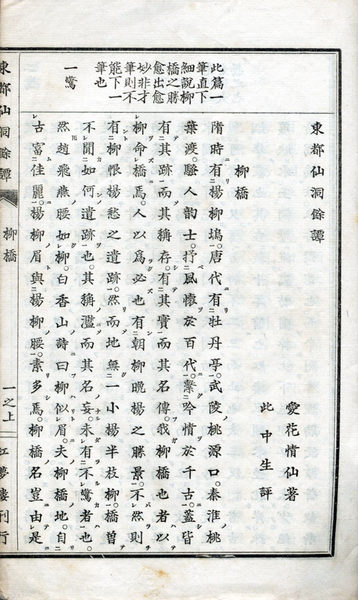 東都仙洞餘譚
愛花情仙著
此中生評
柳橋
隋時有楊柳塢。唐代有牡丹亭。武陵桃源口。秦淮桃
葉渡。騷人韻士。抒風懷於百代。繫吟情於千古。蓋皆
有其跡而其稱存。有其實而其名傳。我柳橋也者以
柳命橋焉。人以為必也有朝柳晩楊之勝景。不然則
有柳恨楊愁之遺跡。然而地無一小楊半枝柳。橋曽
不聞如何遺跡也。其稱濫而其名妄。未有不驚者也。
然趙飛燕腰如柳。白香山詩曰柳似眉。夫柳橋地。自
古富佳麗。楊柳眉與楊柳腰。素多焉。柳橋名豈由是
此篇一
筆直下
細說柳
橋之勝
愈出愈
妙非才
筆則不
能下一
筆也
一驚
東都仙洞餘譚
柳橋
一之上
紅夢樓刊行